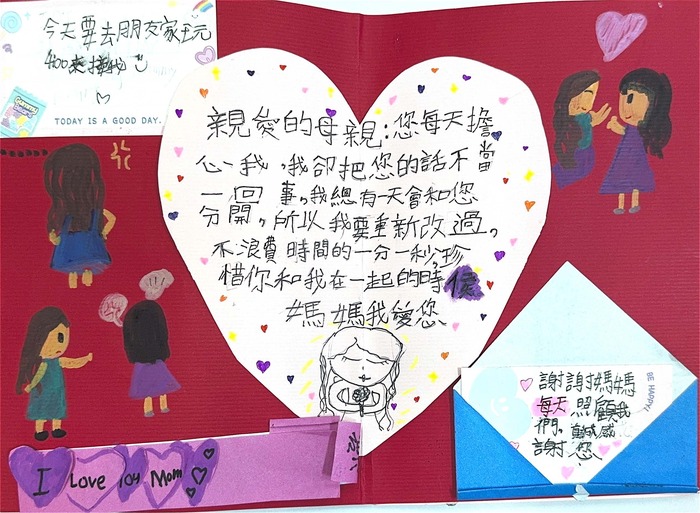 今天要去朋友家玩
400來接我
TODAY IS A GOOD DAY.
親愛的母親:您每天擔
心我,我卻把您的話不當
一回事。我總有一天會和您
分開。所以我要重新改過。
不浪費時間的一分一秒。珍
惜你和我在一起的時候
媽媽我愛您
謝謝媽媽
每天照顧我
們,
謝您
BE HAPPY!
I Love my Mom